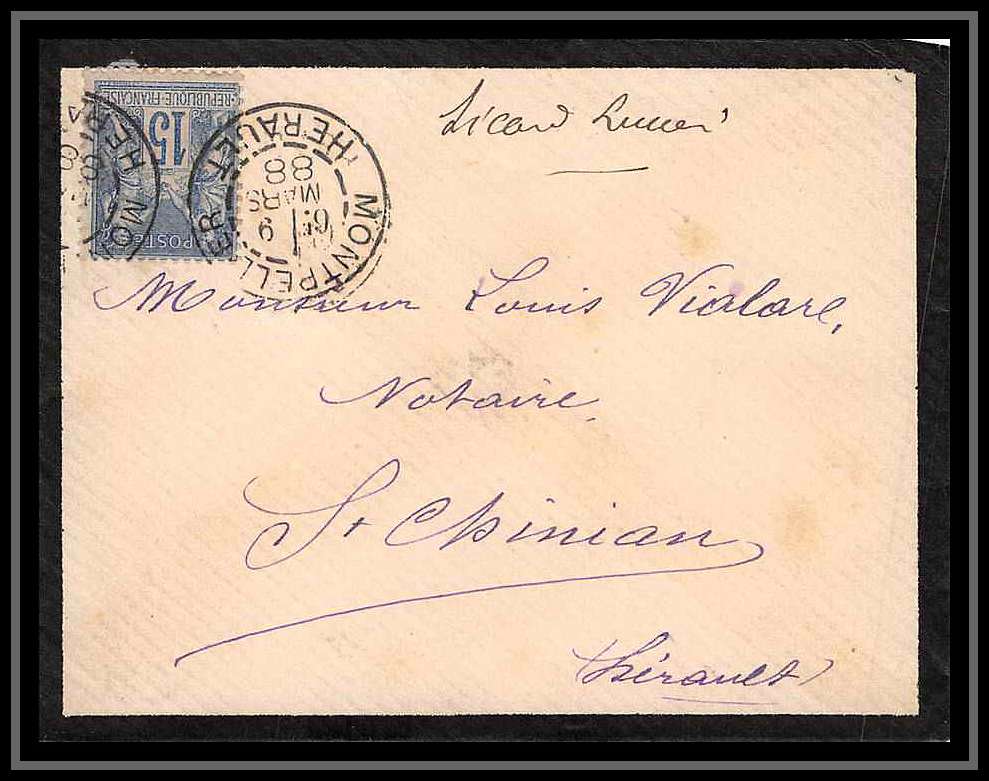 REPUBLIQUE FRANÇAISE
15
POSTE
MONTPELLIER HERAULT
MARS
88
MO
HER
Sicard
Monsieur Louis Vialare,
Notaire
St Chinian
Hérault